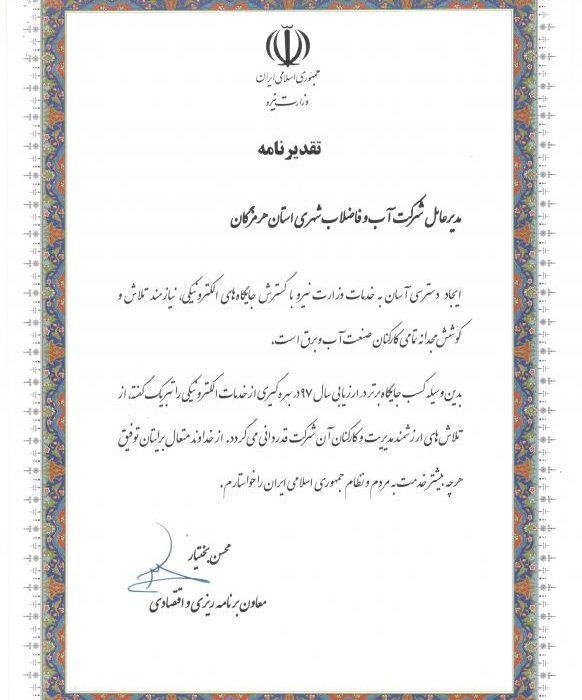 جمهوری اسلامی ایران
وزارت نیرو
تقدیرنامه
مدیرعامل شرکت آب و فاضلاب شهری استان هرمزگان
ایجاد دسترسی آسان به خدمات وزارت نیرو با گسترش جایگاه‌های الکترونیکی، نیازمند تلاش و
کوشش مجدانه تمامی کارکنان صنعت آب و برق است.
بدین وسیله کسب جایگاه برتر در ارزیابی سال ۹۷ در بهره گیری از خدمات الکترونیکی را تبریک گفته، از
تلاش‌های ارزشمند مدیریت و کارکنان آن شرکت قدردانی می گردد. از خداوند متعال برایتان توفیق
هرچه بیشتر خدمت به مردم و نظام جمهوری اسلامی ایران را خواستارم.
محسن بختیار
معاون برنامه ریزی و اقتصادی